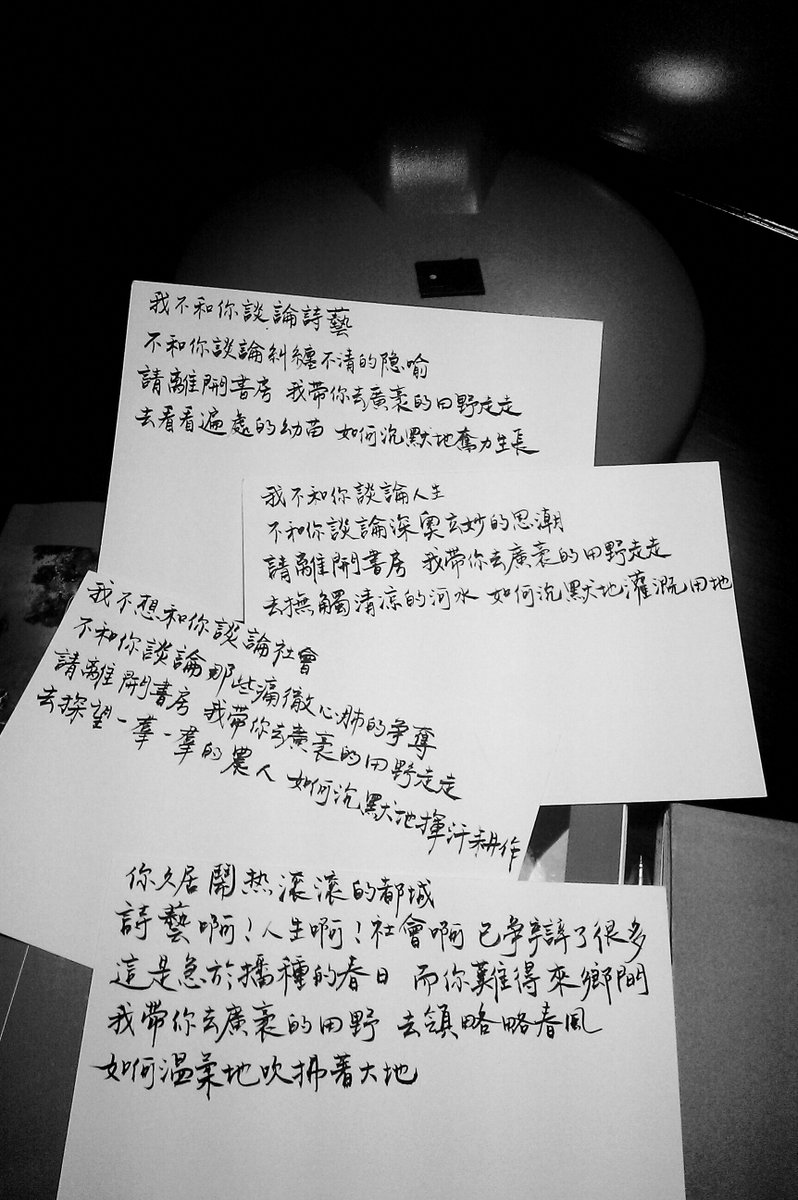 我不和你談論詩藝
不和你談論糾纏不清的隐喻
請離開書房 我带你去廣袤的田野走走
去看看遍處的幼苗 如何沉默地奮力生長
我不和你談論人生
不和你談論深奧玄妙的思潮
請離開書房 我带你去廣袤的田野走走
去撫觸清涼的河水 如何沉默地灌溉田地
我不想和你談論社會
不和你談論那些痛徹心肺的争奪
請離開書房 我带你去廣袤的田野走走
去探望一羣一羣的農人 如何沉默地揮汗耕作
你久居鬧热滚滚的都城
詩藝啊!人生啊!社會啊 已争辯了很多
這是急於播種的春日 而你難得來鄉間
我带你去廣袤的田野 去領略略春風
如何溫柔地吹拂著大地